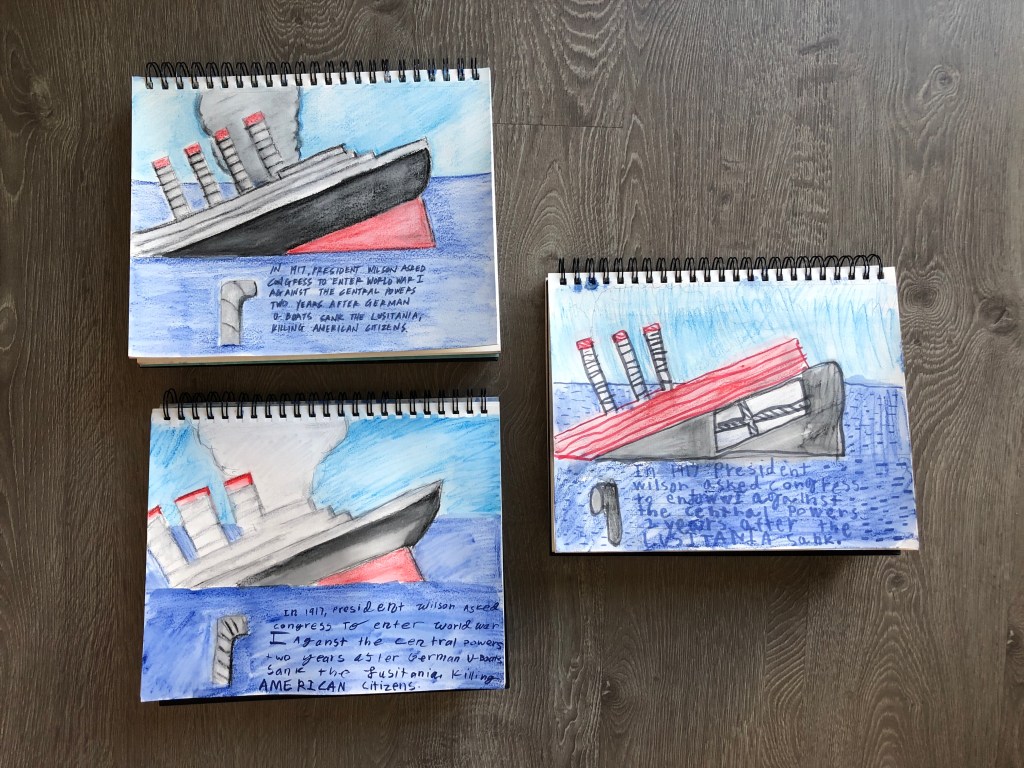 IN 1917, PRESIDENT WILSON ASKED
CONGRESS TO ENTER WORLD WAR I
AGAINST THE CENTRAL POWERS
TWO YEARS AFTER GERMAN
U-BOATS SANK THE LUSITANIA,
KILLING AMERICAN CITIZENS.
In 1917, President Wilson Asked
congress To enter World war
I Aganst the central powers
two years after German U-Boats
Sank the lusitania, Killing
AMERICAN Citizens.
In 1917 President
wilson asked congress
to enter WWI against
the central Powers
2 years after the
LUSITANIA Sank.